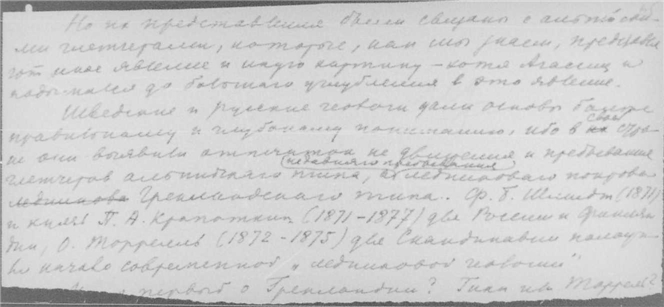 Но их представления были связаны с альпийски-
ми глетчерами, которые, как мы знаем, представля
ют иное явление и иную картину – хотя Агассиц и
подымался до большего углубления в это явление.
Шведские и русские геологи дали основы более
правильному и глубокому пониманию, ибо в своей стра
не они выявили отпечаток не движения и пребывания
глетчеров альпийского типа, а недавнего пребывания ледникового покрова
ледникова Гренландского типа. Ф. Б. Шмидт (1871)
и князь П. А. Кропоткин (1871-1877) для России и Финлян
дии, О. Торрелль (1872-1875) для Скандинавии положи
ли начало современной „ледниковой геологии"
первый о Гренландии? Гики или Торрель?